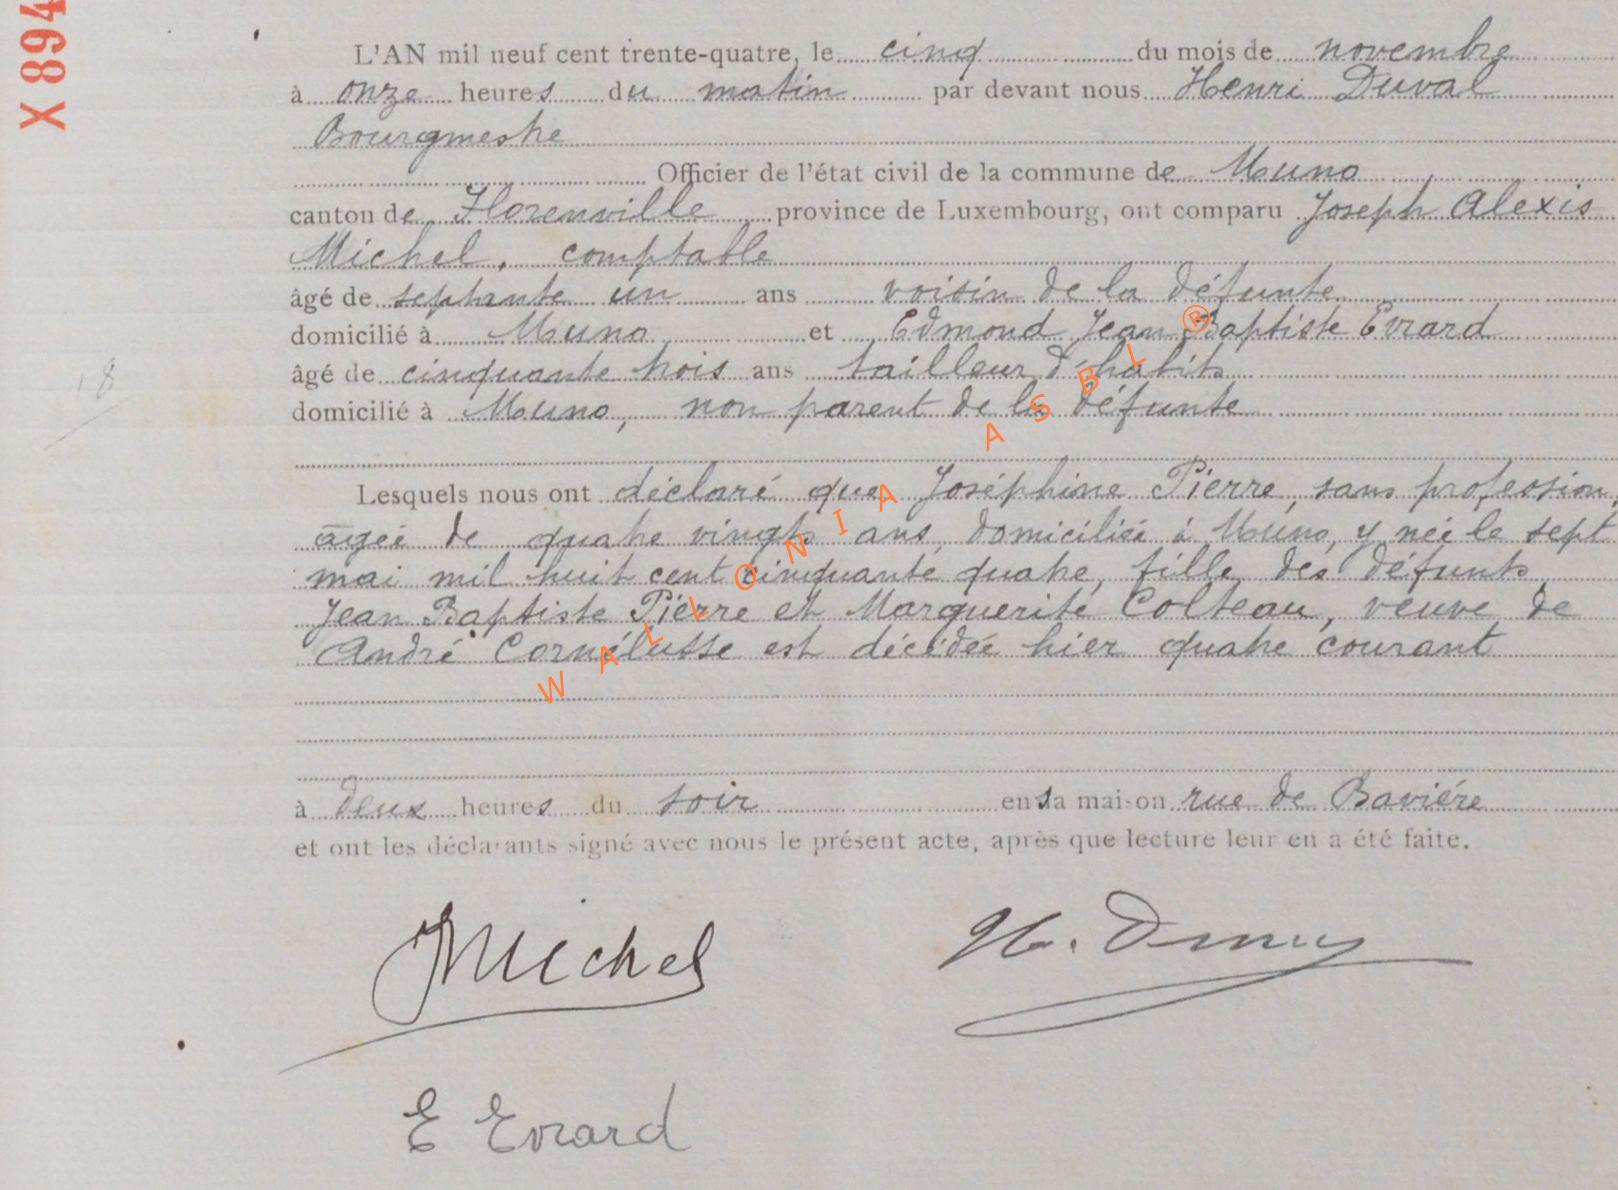 X 894
L'AN mil neuf cent trente-quatre, le cinq du mois de novembre
à onze heures du matin par devant nous Henri Duval
Bourgmestre
Officier de l'état civil de la commune de Muno
canton de Florenville province de Luxembourg, ont comparu Joseph Alexis
Michel, comptable
âgé de septante un ans voisin de la défunte
domicilié à Muno et Edmond Jean Baptiste Evrard
âgé de cinquante trois ans tailleur d'habits
18
domicilié à Muno, non parent de la défunte
Lesquels nous ont déclaré que Joséphine Pierre, sans profession,
agée de quatre vingts ans, domiciliée à Muno, y née le sept
mai mil huit cent cinquante quatre, fille des défunts
Jean Baptiste Pierre et Marguerite Colteau, veuve de
André Cornélusse est décédée hier quatre courant
à deux heures du soir en sa maison rue de Bavière
et ont les déclarants signé avec nous le présent acte, après que lecture leur en a été faite.
JMichel
H. Duval
E Evrard
WALLONIA ASBL ®